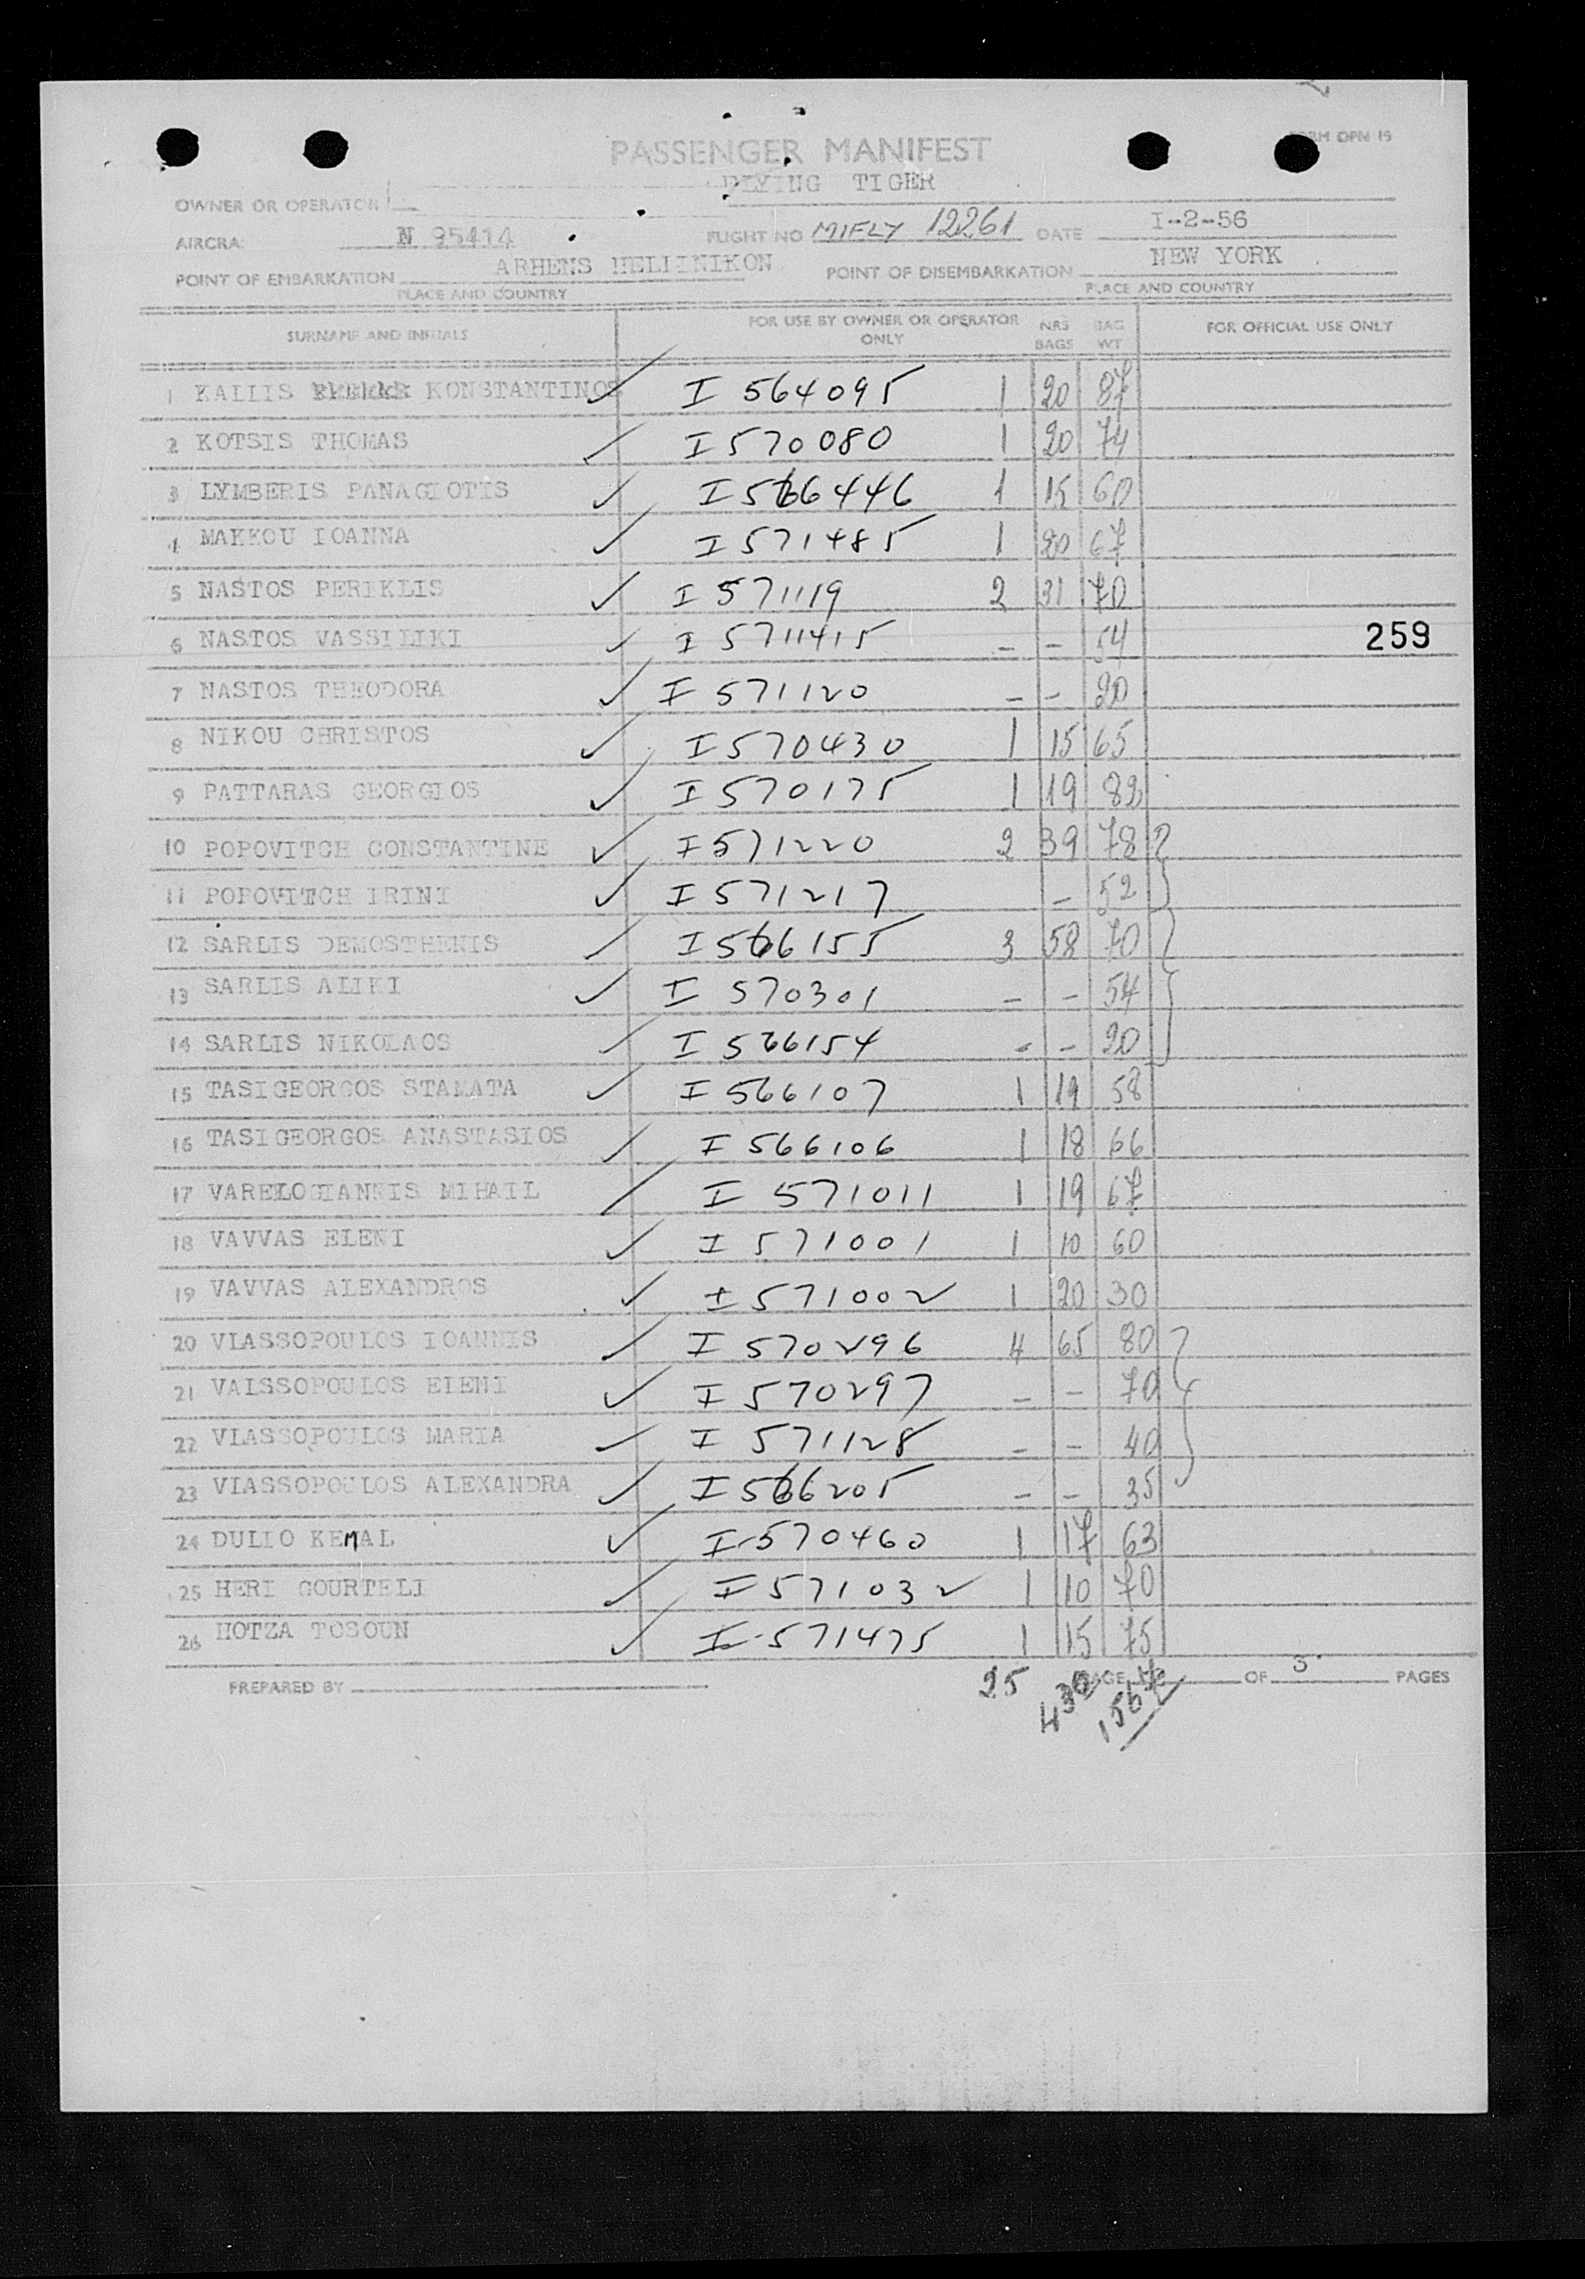 FORM OPN 15
PASSENGER MANIFEST
FLYING TIGER
OWNER OR OPERATOR
AIRCRA N 95414 FLIGHT NO MIFLY 12261 DATE I-2-56
POINT OF EMBARKATION ARHENS HELIINIKON POINT OF DISEMBARKATION NEW YORK
PLACE AND COUNTRY PLACE AND COUNTRY
SURNAME AND INITIALS FOR USE BY OWNER OR OPERATOR ONLY NRS BAGS BAG WT FOR OFFICIAL USE ONLY
1 KALLIS KONSTANTINOS ✓ I 564095 1 20 87
2 KOTSIS THOMAS ✓ I 570080 1 20 74
3 LYMBERIS PANAGIOTIS ✓ I 566446 1 15 60
4 MAKKOU IOANNA ✓ I 571485 1 20 67
5 NASTOS PERIKLIS ✓ I 571119 2 31 70
6 NASTOS VASSILIKI ✓ I 5711415 - - 54
259
7 NASTOS THEODORA ✓ I 571120 - - 20
8 NIKOU CHRISTOS ✓ I 570430 1 15 65
9 PATTARAS GEORGIOS ✓ I 570175 1 19 82
10 POPOVITCH CONSTANTINE ✓ I 571220 2 39 78
11 POPOVITCH IRINI ✓ I 571217 - 52
12 SARLIS DEMOSTHENIS ✓ I 566155 3 58 70
13 SARLIS ALIKI ✓ I 570301 - - 54
14 SARLIS NIKOLAOS ✓ I 566154 - - 20
15 TASIGEORGOS STAMATA ✓ I 566107 1 19 58
16 TASIGEORGOS ANASTASIOS ✓ I 566106 1 18 66
17 VARELOGIANNIS MIHAIL ✓ I 571011 1 19 67
18 VAVVAS ELENI ✓ I 571001 1 10 60
19 VAVVAS ALEXANDROS ✓ I 571002 1 20 30
20 VLASSOPOULOS IOANNIS ✓ I 570296 4 65 80
21 VAISSOPOULOS ELENI ✓ I 570297 - - 70
22 VLASSOPOULOS MARIA ✓ I 571128 - - 40
23 VLASSOPOULOS ALEXANDRA ✓ I 566205 - - 35
24 DULIO KEMAL ✓ I-570460 1 17 63
25 HERI GOURTELI ✓ I 571032 1 10 70
26 HOTZA TOSOUN ✓ I-571475 1 15 75
PREPARED BY 25 430 1567 PAGE OF 3 PAGES